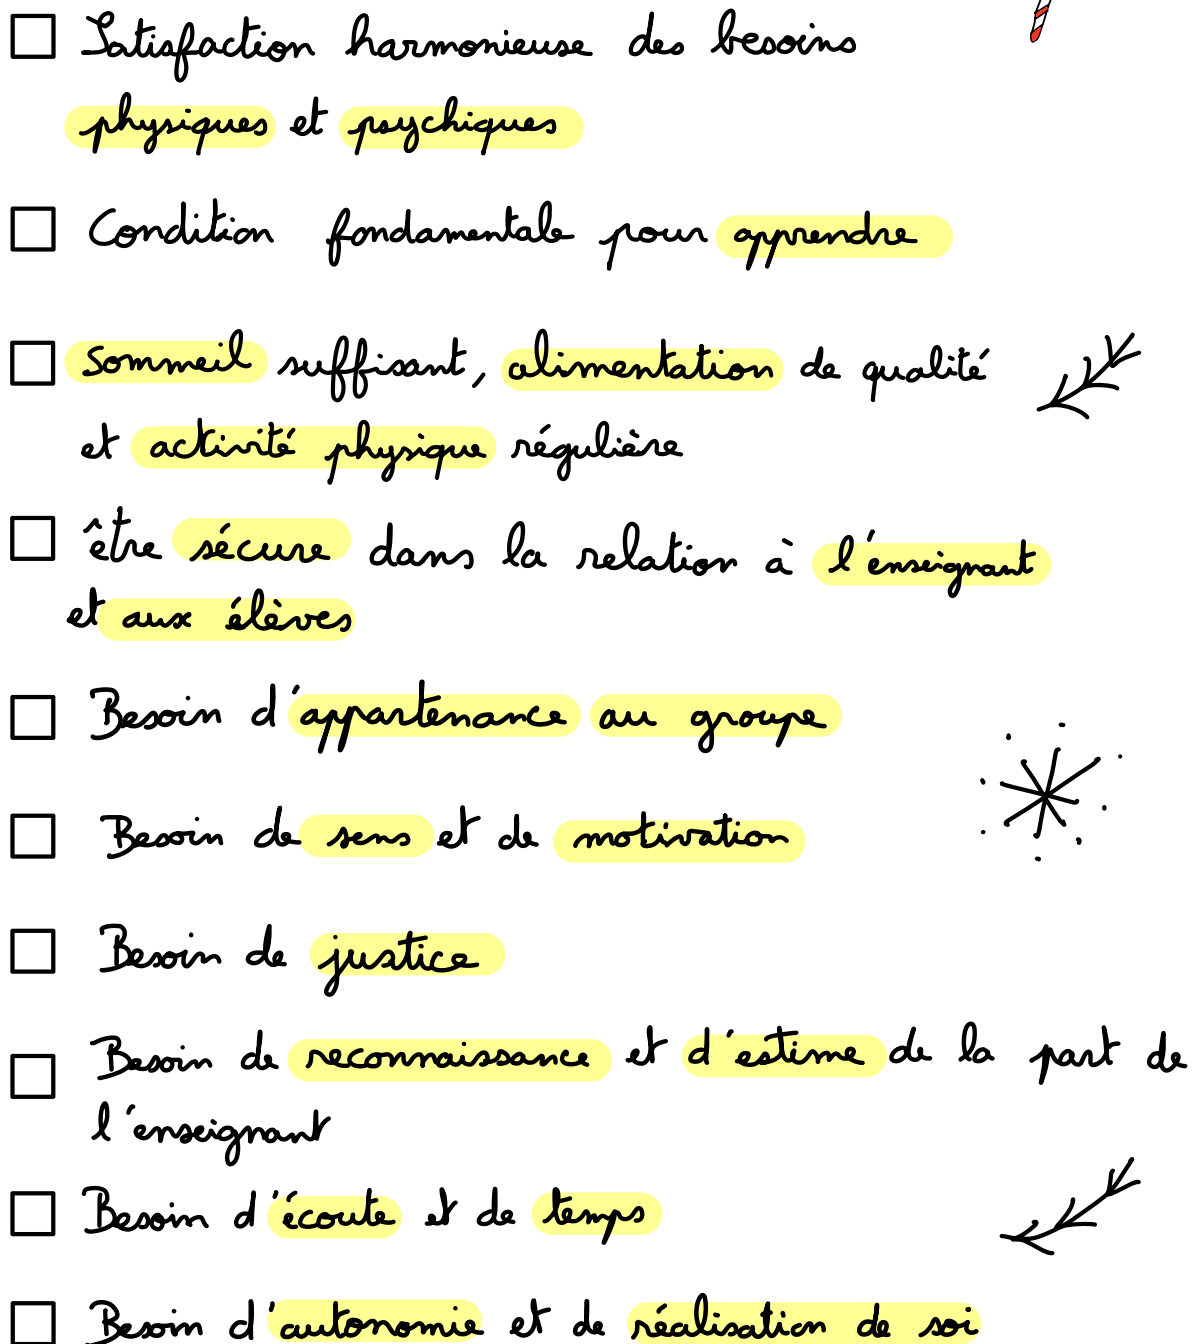 Satisfaction harmonieuse des besoins
physiques et psychiques
Condition fondamentale pour apprendre
Sommeil suffisant, alimentation de qualité
et activité physique régulière
être sécure dans la relation à l'enseignant
et aux élèves
Besoin d'appartenance au groupe
Besoin de sens et de motivation
Besoin de justice
Besoin de reconnaissance et d'estime de la part de
l'enseignant
Besoin d'écoute et de temps
Besoin d'autonomie et de réalisation de soi